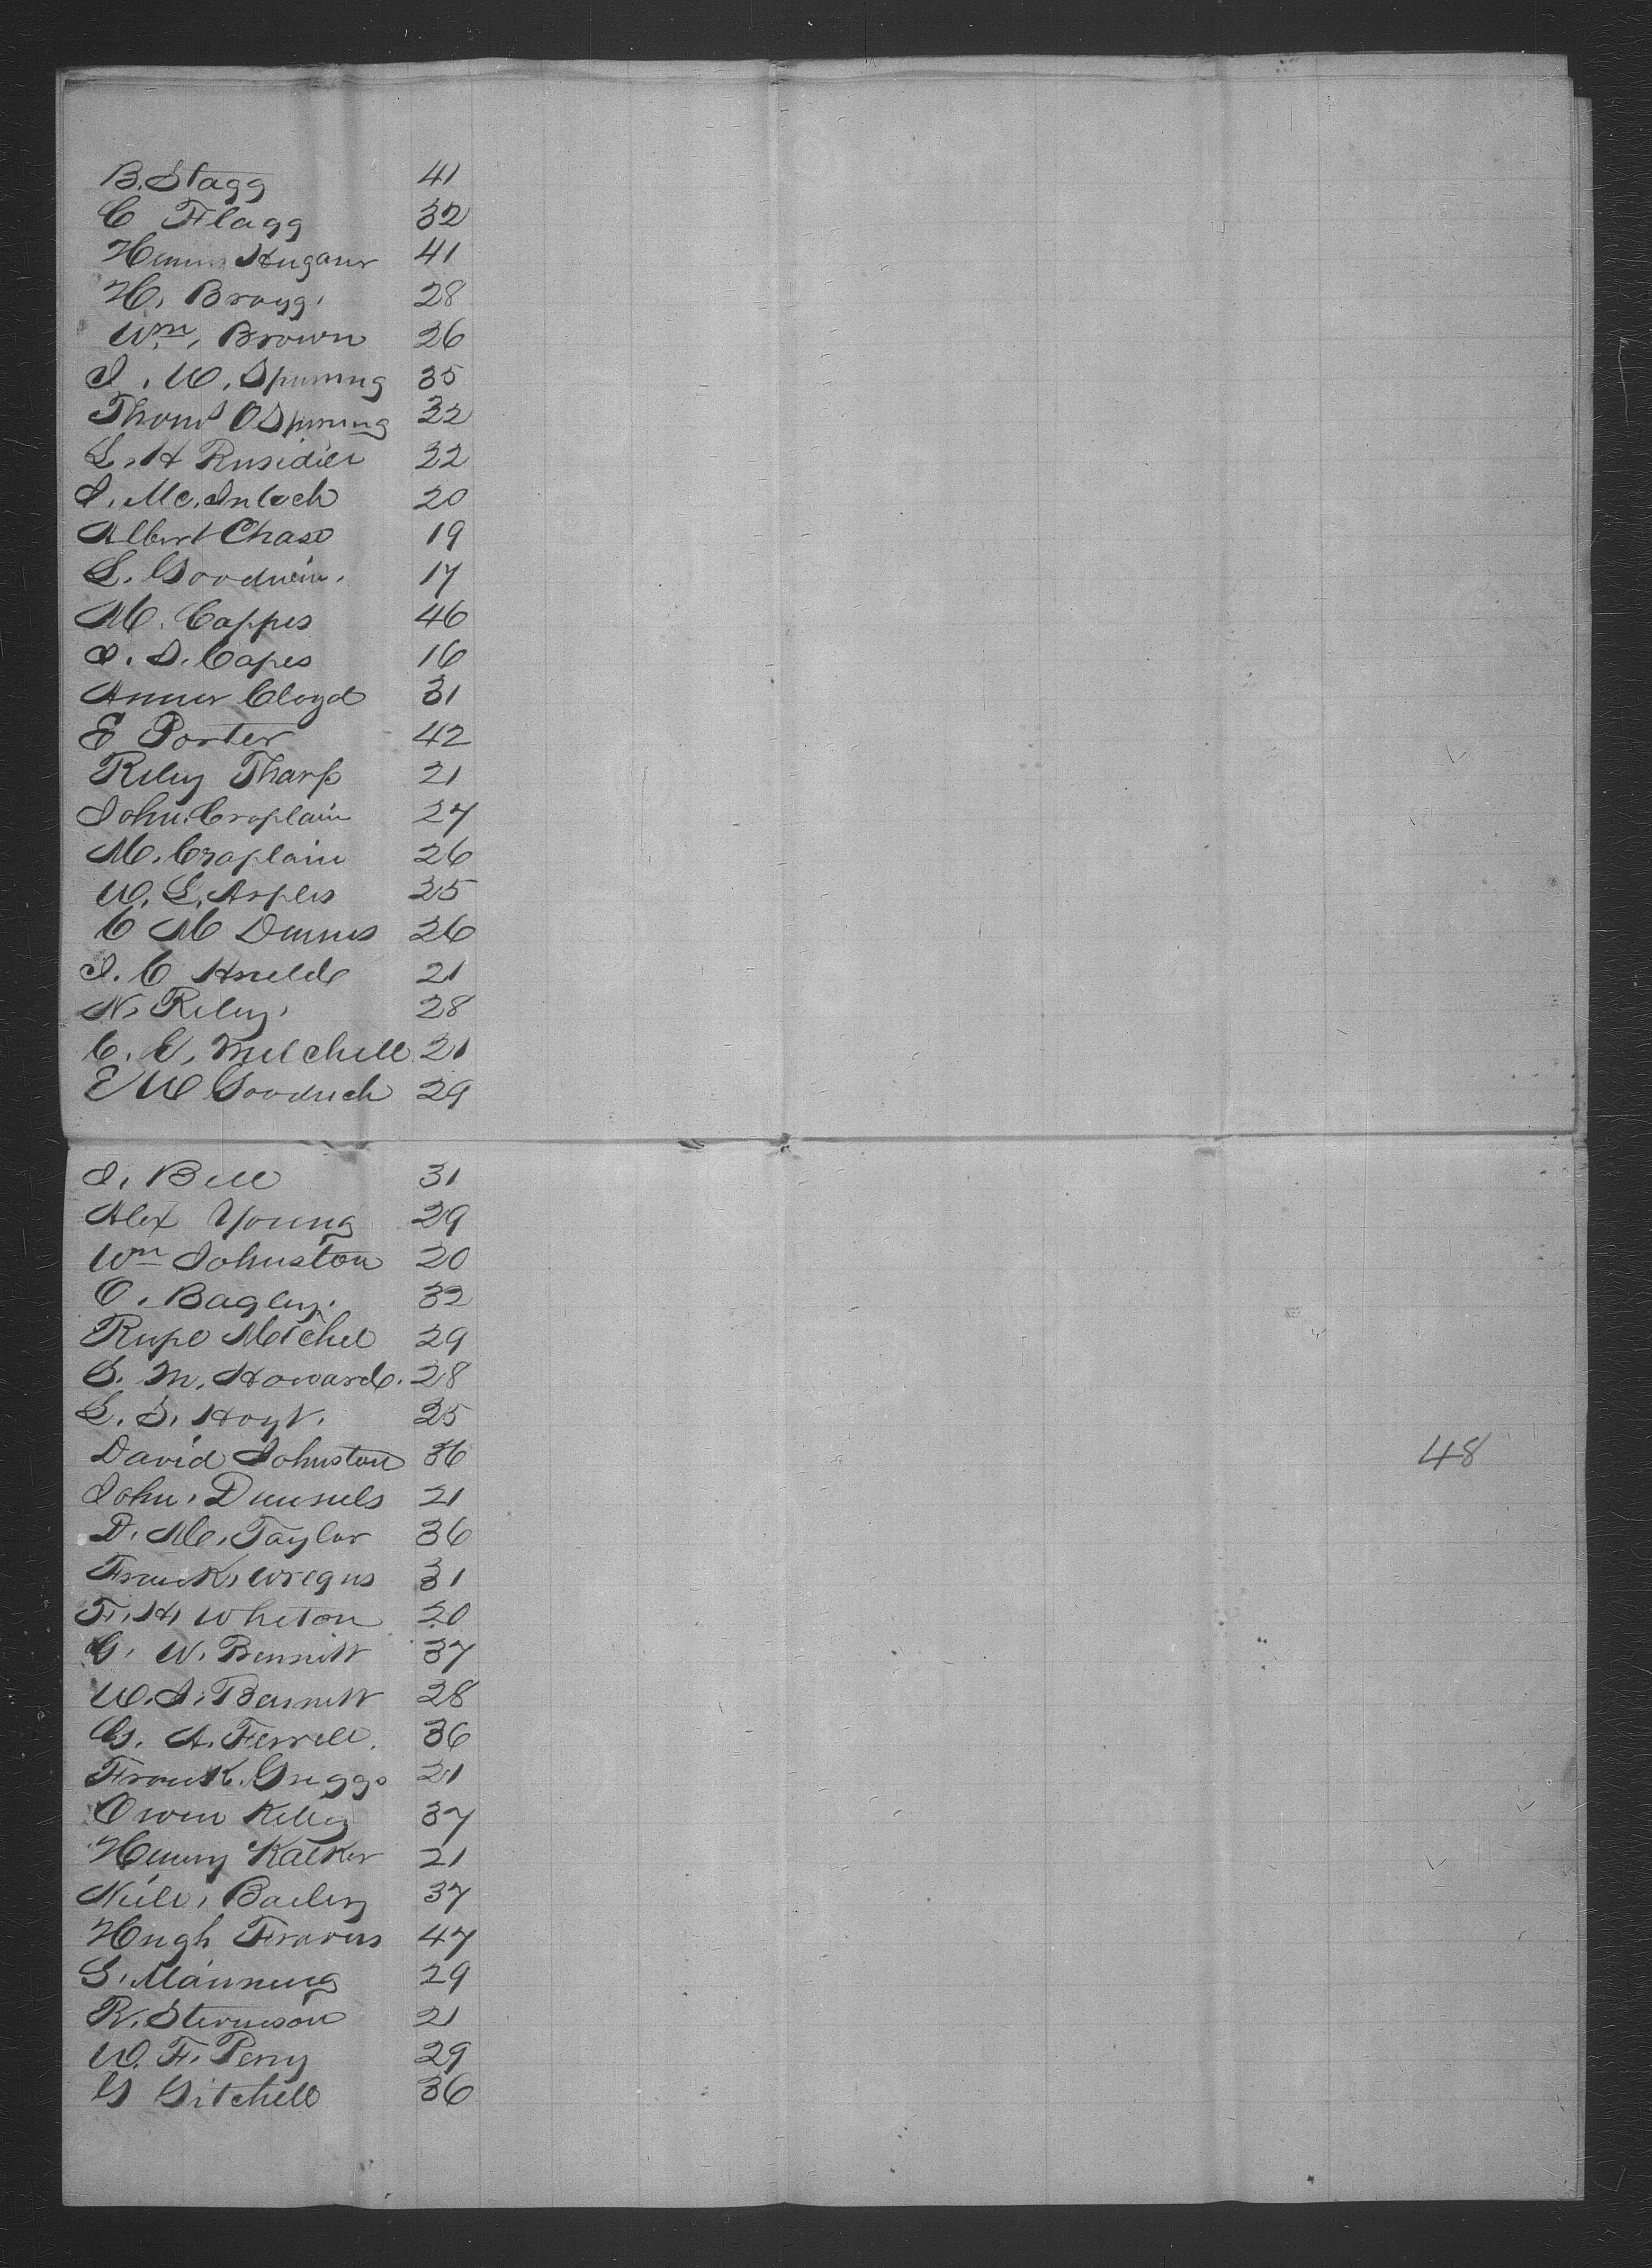 B. Stagg 41
C Flagg 32
41
H. Bragg. 28
Wm, Brown 26
J. W. Spining 35
Thoms O Spining 22
L. H 22
J. Mc. Intoch 20
Albert Chase 19
L. Goodwin. 17
M. Cappes 46
J. D. Capes 16
Anner Cloyd 31
E Porter 42
Riley Tharp 21
John. Croplain 27
M. Croplain 26
W. L. Arples 25
C M Dennes 26
J. C 21
N. Riley, 28
C. E. Mitchell. 21
E W Goodrich 29
J. Bell 31
Alex Young 29
Wm Johnston 20
O. Bagley. 32
Rupe Michel 29
S. M. Howard. 28
L. S. Hoyt. 25
David Johnston 36
48
John, Dunnels 21
D. M. Taylor 36
Frank, 31
F. H, Wheton 20
G. W. Bennett 37
W. J. Bennett 28
G. A. Ferrell. 36
Frank. Griggs 21
Owen Kelly 37
Henry Kalker 21
Neile, Bailey 37
Hugh Fravers 47
S. Manning 29
R. Stevneson 21
W. F. Perry 29
G Gitchell 36